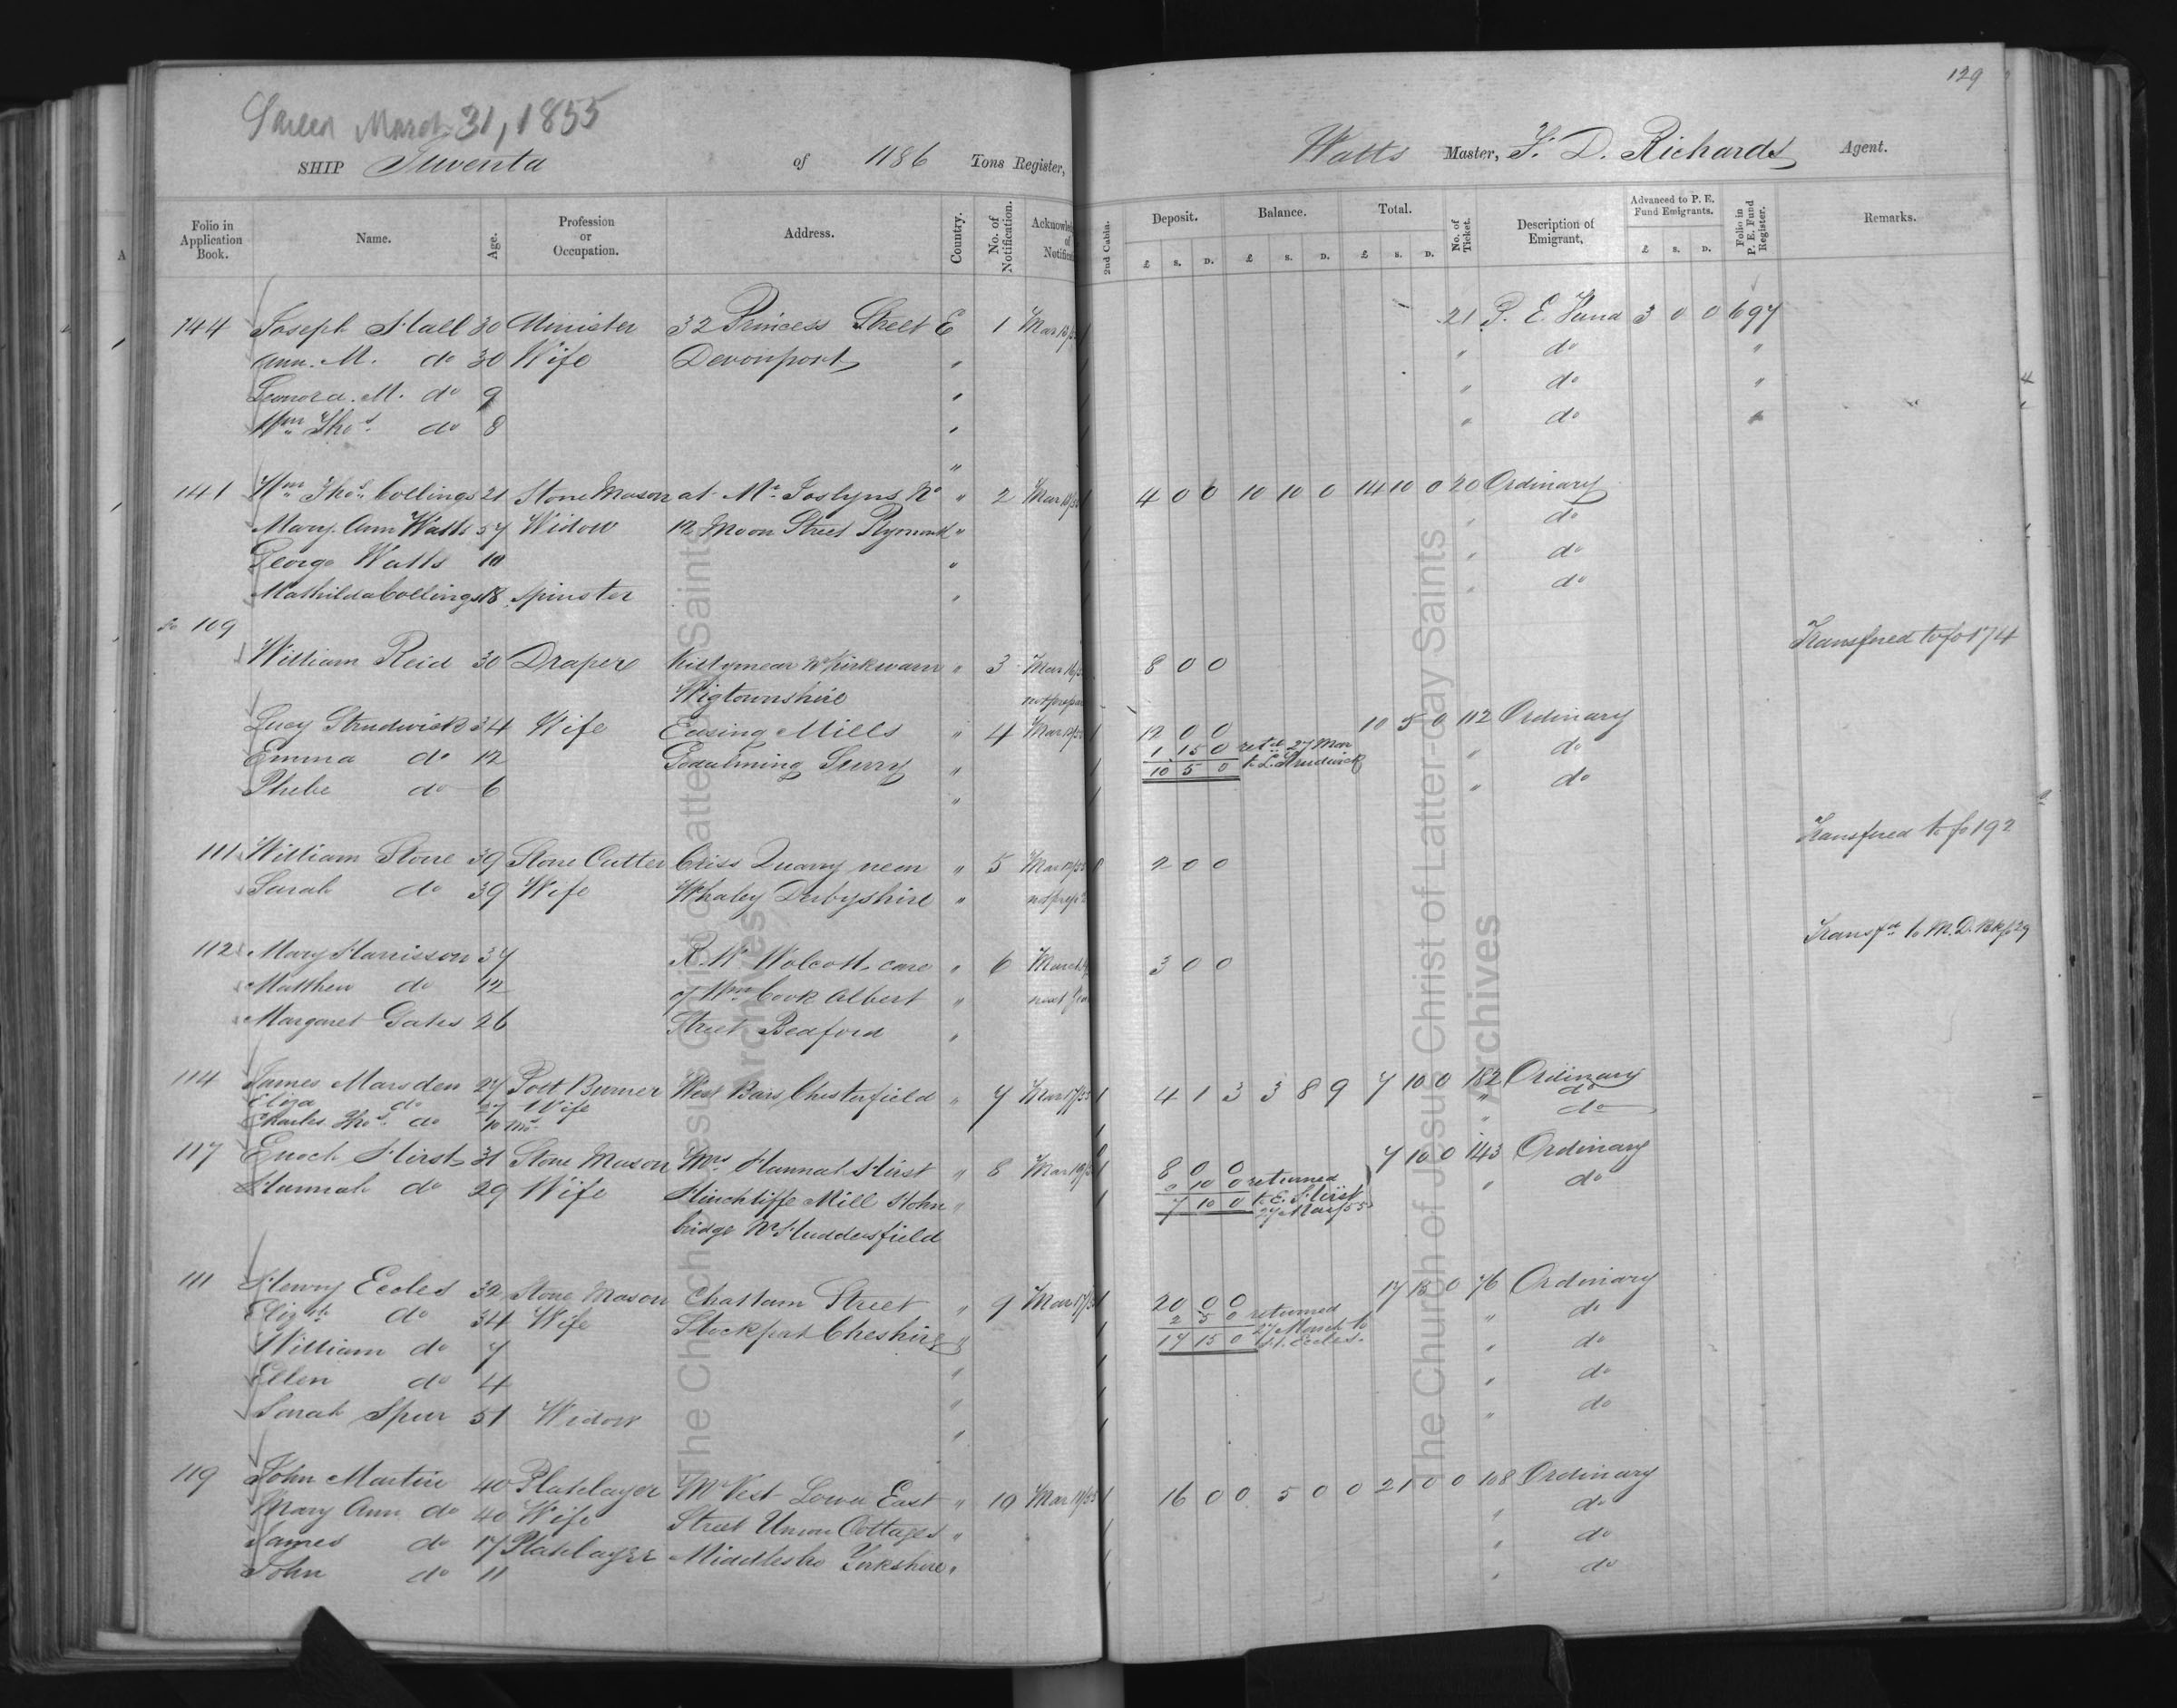 129
Sailed March 31, 1855
SHIP Juventa of 1186 Tons Register, Watts Master, F. D. Richards Agent.
Folio in Application Book. Name. Age. Profession or Occupation. Address. Country. No. of Notification. 2nd Cabin. Deposit. Balance. Total. No. of Ticket. Description of Emigrant. Advanced to P. E. Fund Emigrants. Folio in P. E. Fund Register. Remarks.
£ S. D. £ S. D. £ S. D. £ S. D.
144 Joseph Hall 30 Minister 32 Princess Street E 1 21 P. E. Fund 3 0 0 697
Ann. M. do 30 Wife Devonport " " do "
Leonora. M. do 9 " " do "
Wm Thos. do 8 " " do "
"
141 Wm Thos. Collings 21 Stone Mason at Mr Joslyns No " 2 4 0 0 10 10 0 14 10 0 20 Ordinary
Mary Ann Watts 57 Widow 12 Moon Street Plymouth " " do
George Watts 10 " " do
Mathilda Collings 18 Spinster " " do
109 Transfered to fo 174
William Reid 30 Draper " 3 8 0 0
Wigtownshire
Lucy Strudwick 34 Wife Easing Mills " 4 12 0 0 10 5 0 112 Ordinary
Emma do 12 Godalming Surry " 1 15 0 retd 27 Mar " do
10 5 0 to L. Strudwick
Phebe do 6 " " do
Transfered to fo 192
111 William Stone 39 Stone Cutter Criss Quarry near " 5 2 0 0
Sarah do 39 Wife Whaley Derbyshire "
Transfd to M. D. Bk fo 29
112 Mary Harrisson 37 R. W. Wolcott care " 6 3 0 0
Matthew do 12 of Wm Cook Albert "
Margaret Gates 26 Street Bedford "
114 James Marsden 27 Post Burner West Bars Chesterfield " 7 4 1 3 3 8 9 7 10 0 182 Ordinary
Eliza do 27 Wife " do
Charles Thos. do 10 mo. " do
117 Enoch Hirst 31 Stone Mason Mrs Hannah Hirst " 8 8 0 0 7 10 0 143 Ordinary
Hannah do 29 Wife Hinchliffe Mill Holm " 0 10 0 returned " do
7 10 0 to E. Hirst
27 Mar/55
bridge Nr Huddersfield
111 Henry Eccles 32 Stone Mason Chattam Street " 9 20 0 0 17 15 0 76 Ordinary
Elizth do 34 Wife Stockport Cheshire " 2 5 0 returned " do
17 15 0 27 March to
H. Eccles.
William do 7 " " do
Ellen do 4 " " do
Sarah Spur 51 Widow " " do
119 John Martin 40 Platelayer Mr Vest Lower East " 10 16 0 0 5 0 0 21 0 0 108 Ordinary
Mary Ann do 40 Wife Street Union Cottages " " do
James do 17 Platelayer Middlesbro Yorkshire " " do
John do 11 " do
The Church of Jesus Christ of Latter-day Saints
Archives
The Church of Jesus Christ of Latter-day Saints
Archives